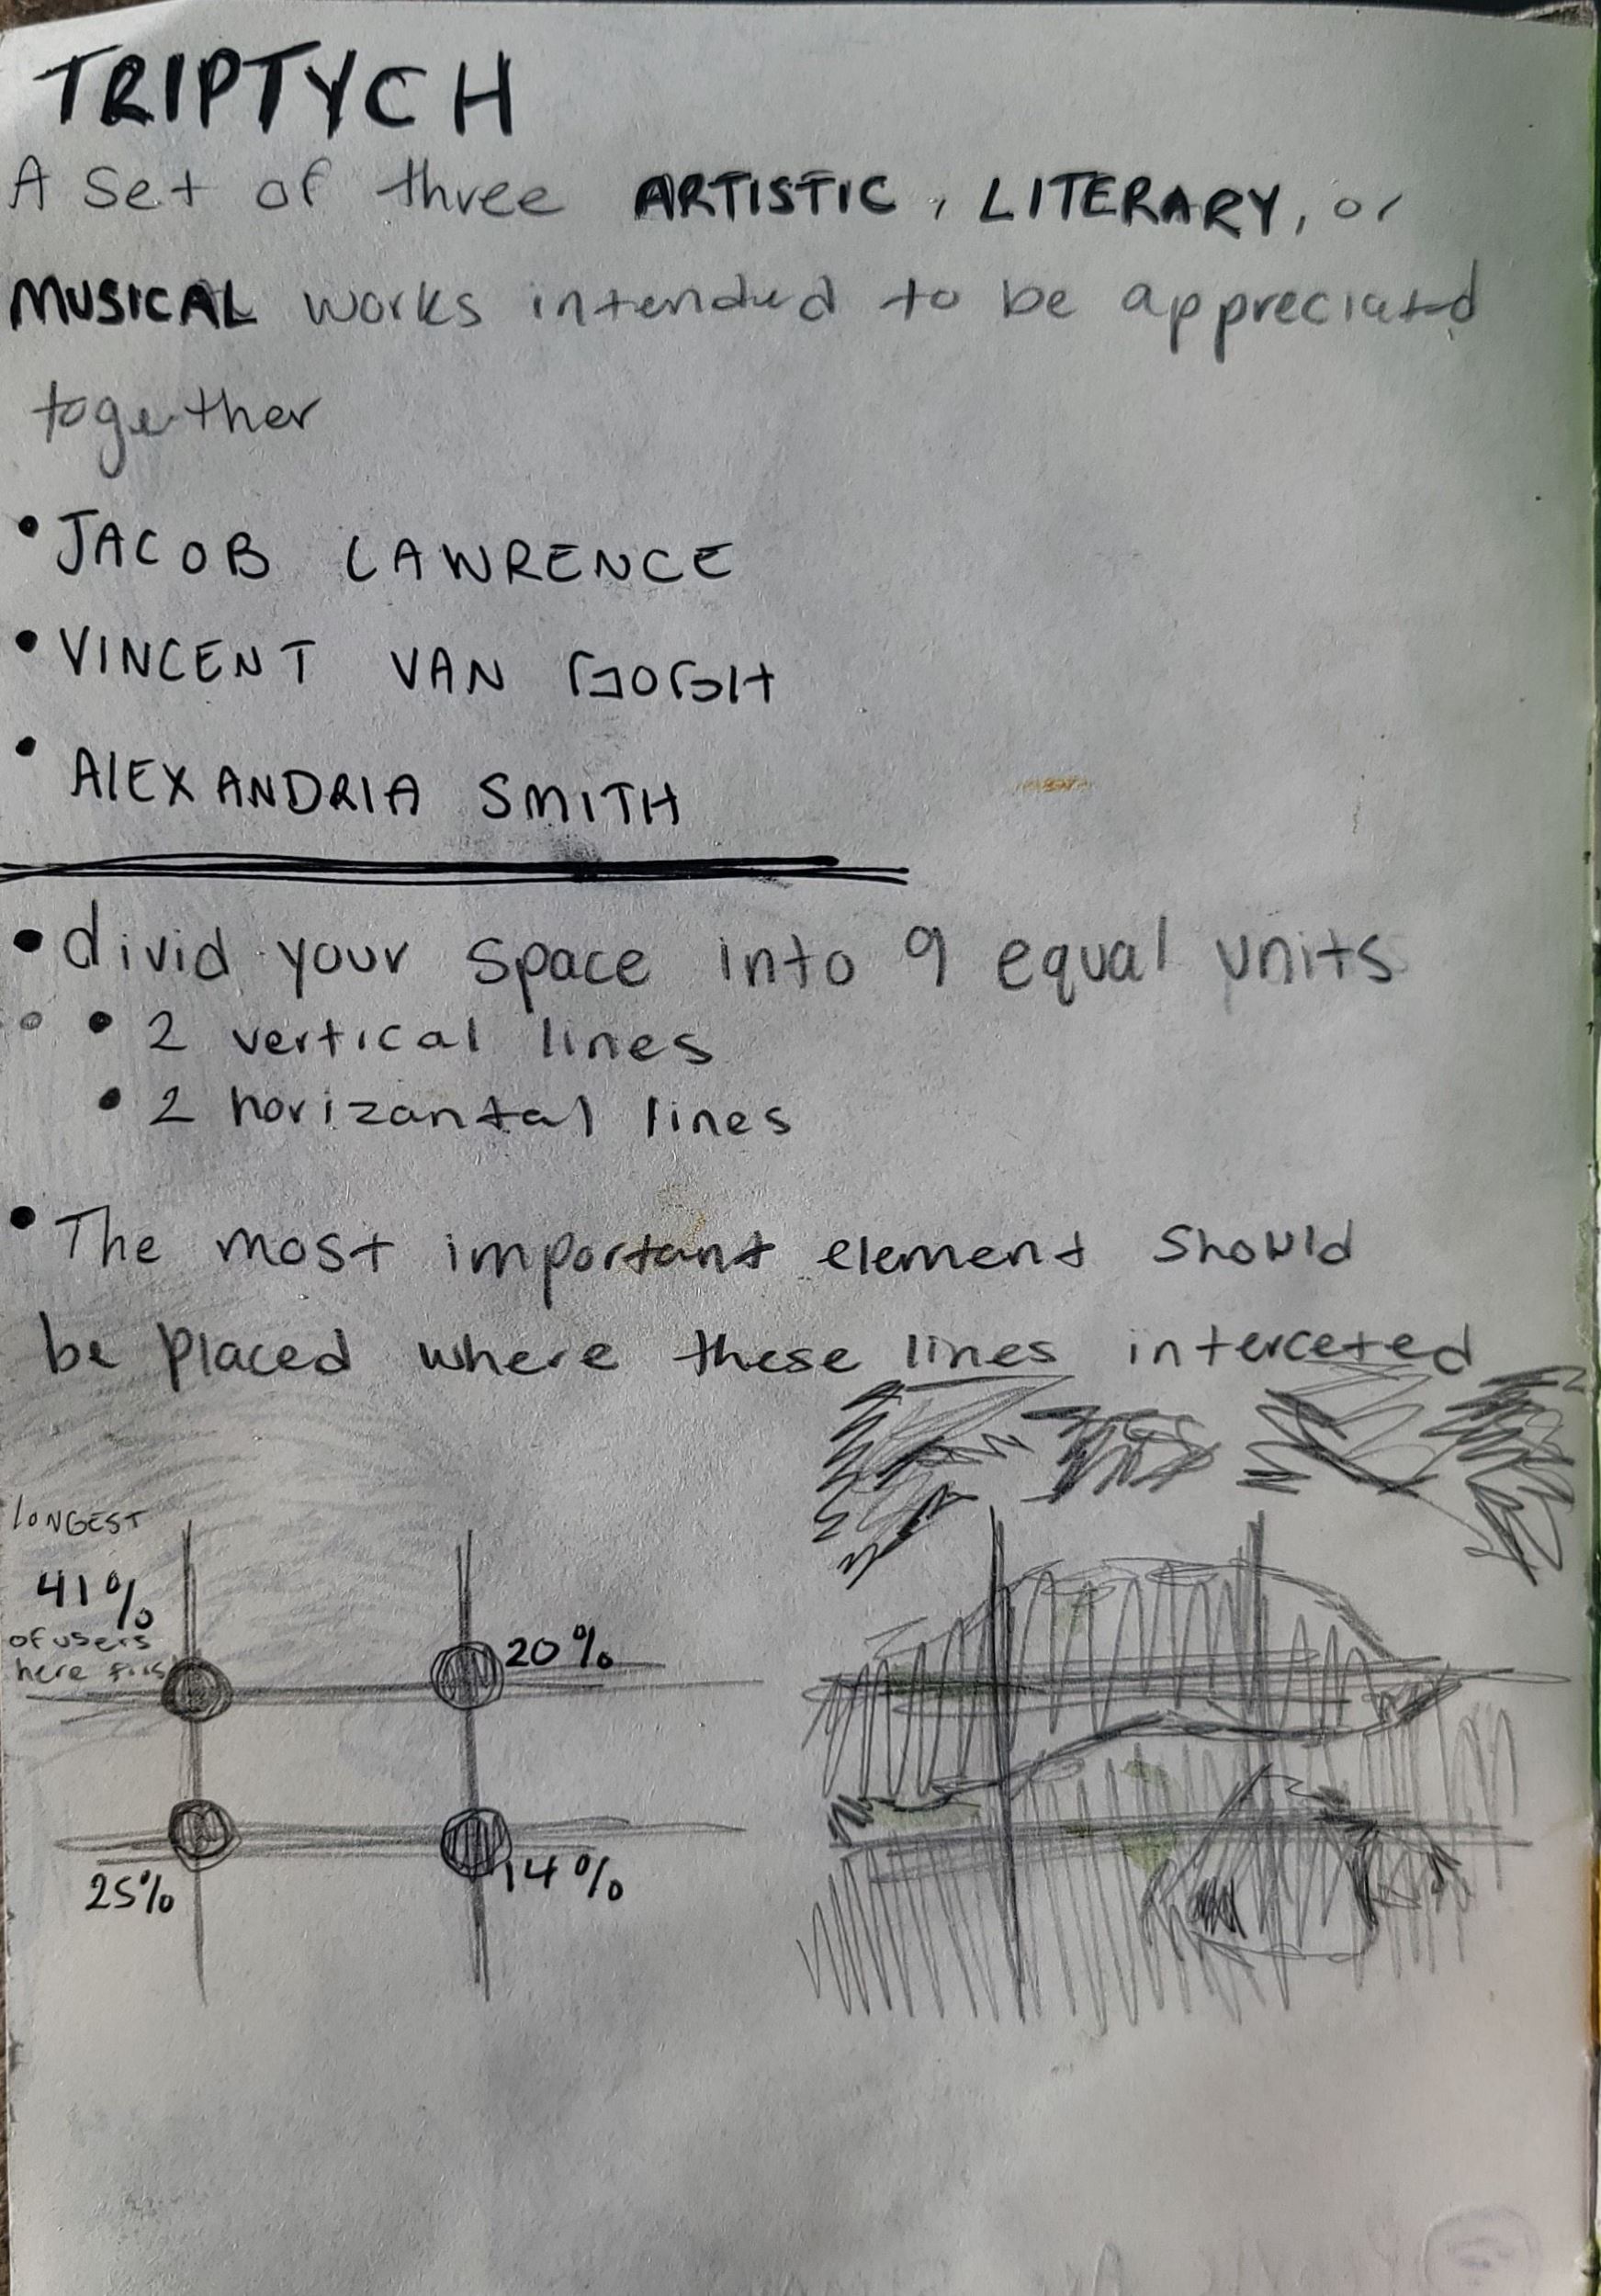 TRIPTYCH
A Set of three ARTISTIC, LITERARY, or
MUSICAL works intended to be appreciated
together
• JACOB LAWRENCE
• VINCENT VAN GOGH
• AlEXANDRIA SMITH
• divid your space into 9 equal units
• 2 vertical lines
• 2 horizantal lines
• The most important element should
be placed where these lines interceted
LONGEST
41%
of users
here first
20%
25%
14%